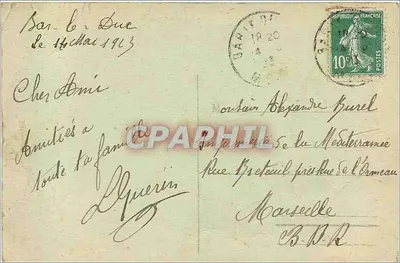 Bar-le-Duc
Le 14 Mai 1923
Cher Ami
Amitiés a
toute ta famille
L Guerin
BAR-LE-DUC
18 20
4
FRANÇAISE
10c
POSTES
Monsieur Alexandre Burel
de la Méditerranée
Rue Breteuil près Rue de l'Ormeau
Marseille
B.D.R
CPARPHIL